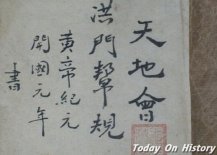 天地會
洪門幫規
黃帝紀元
開國元年
書
Today On History